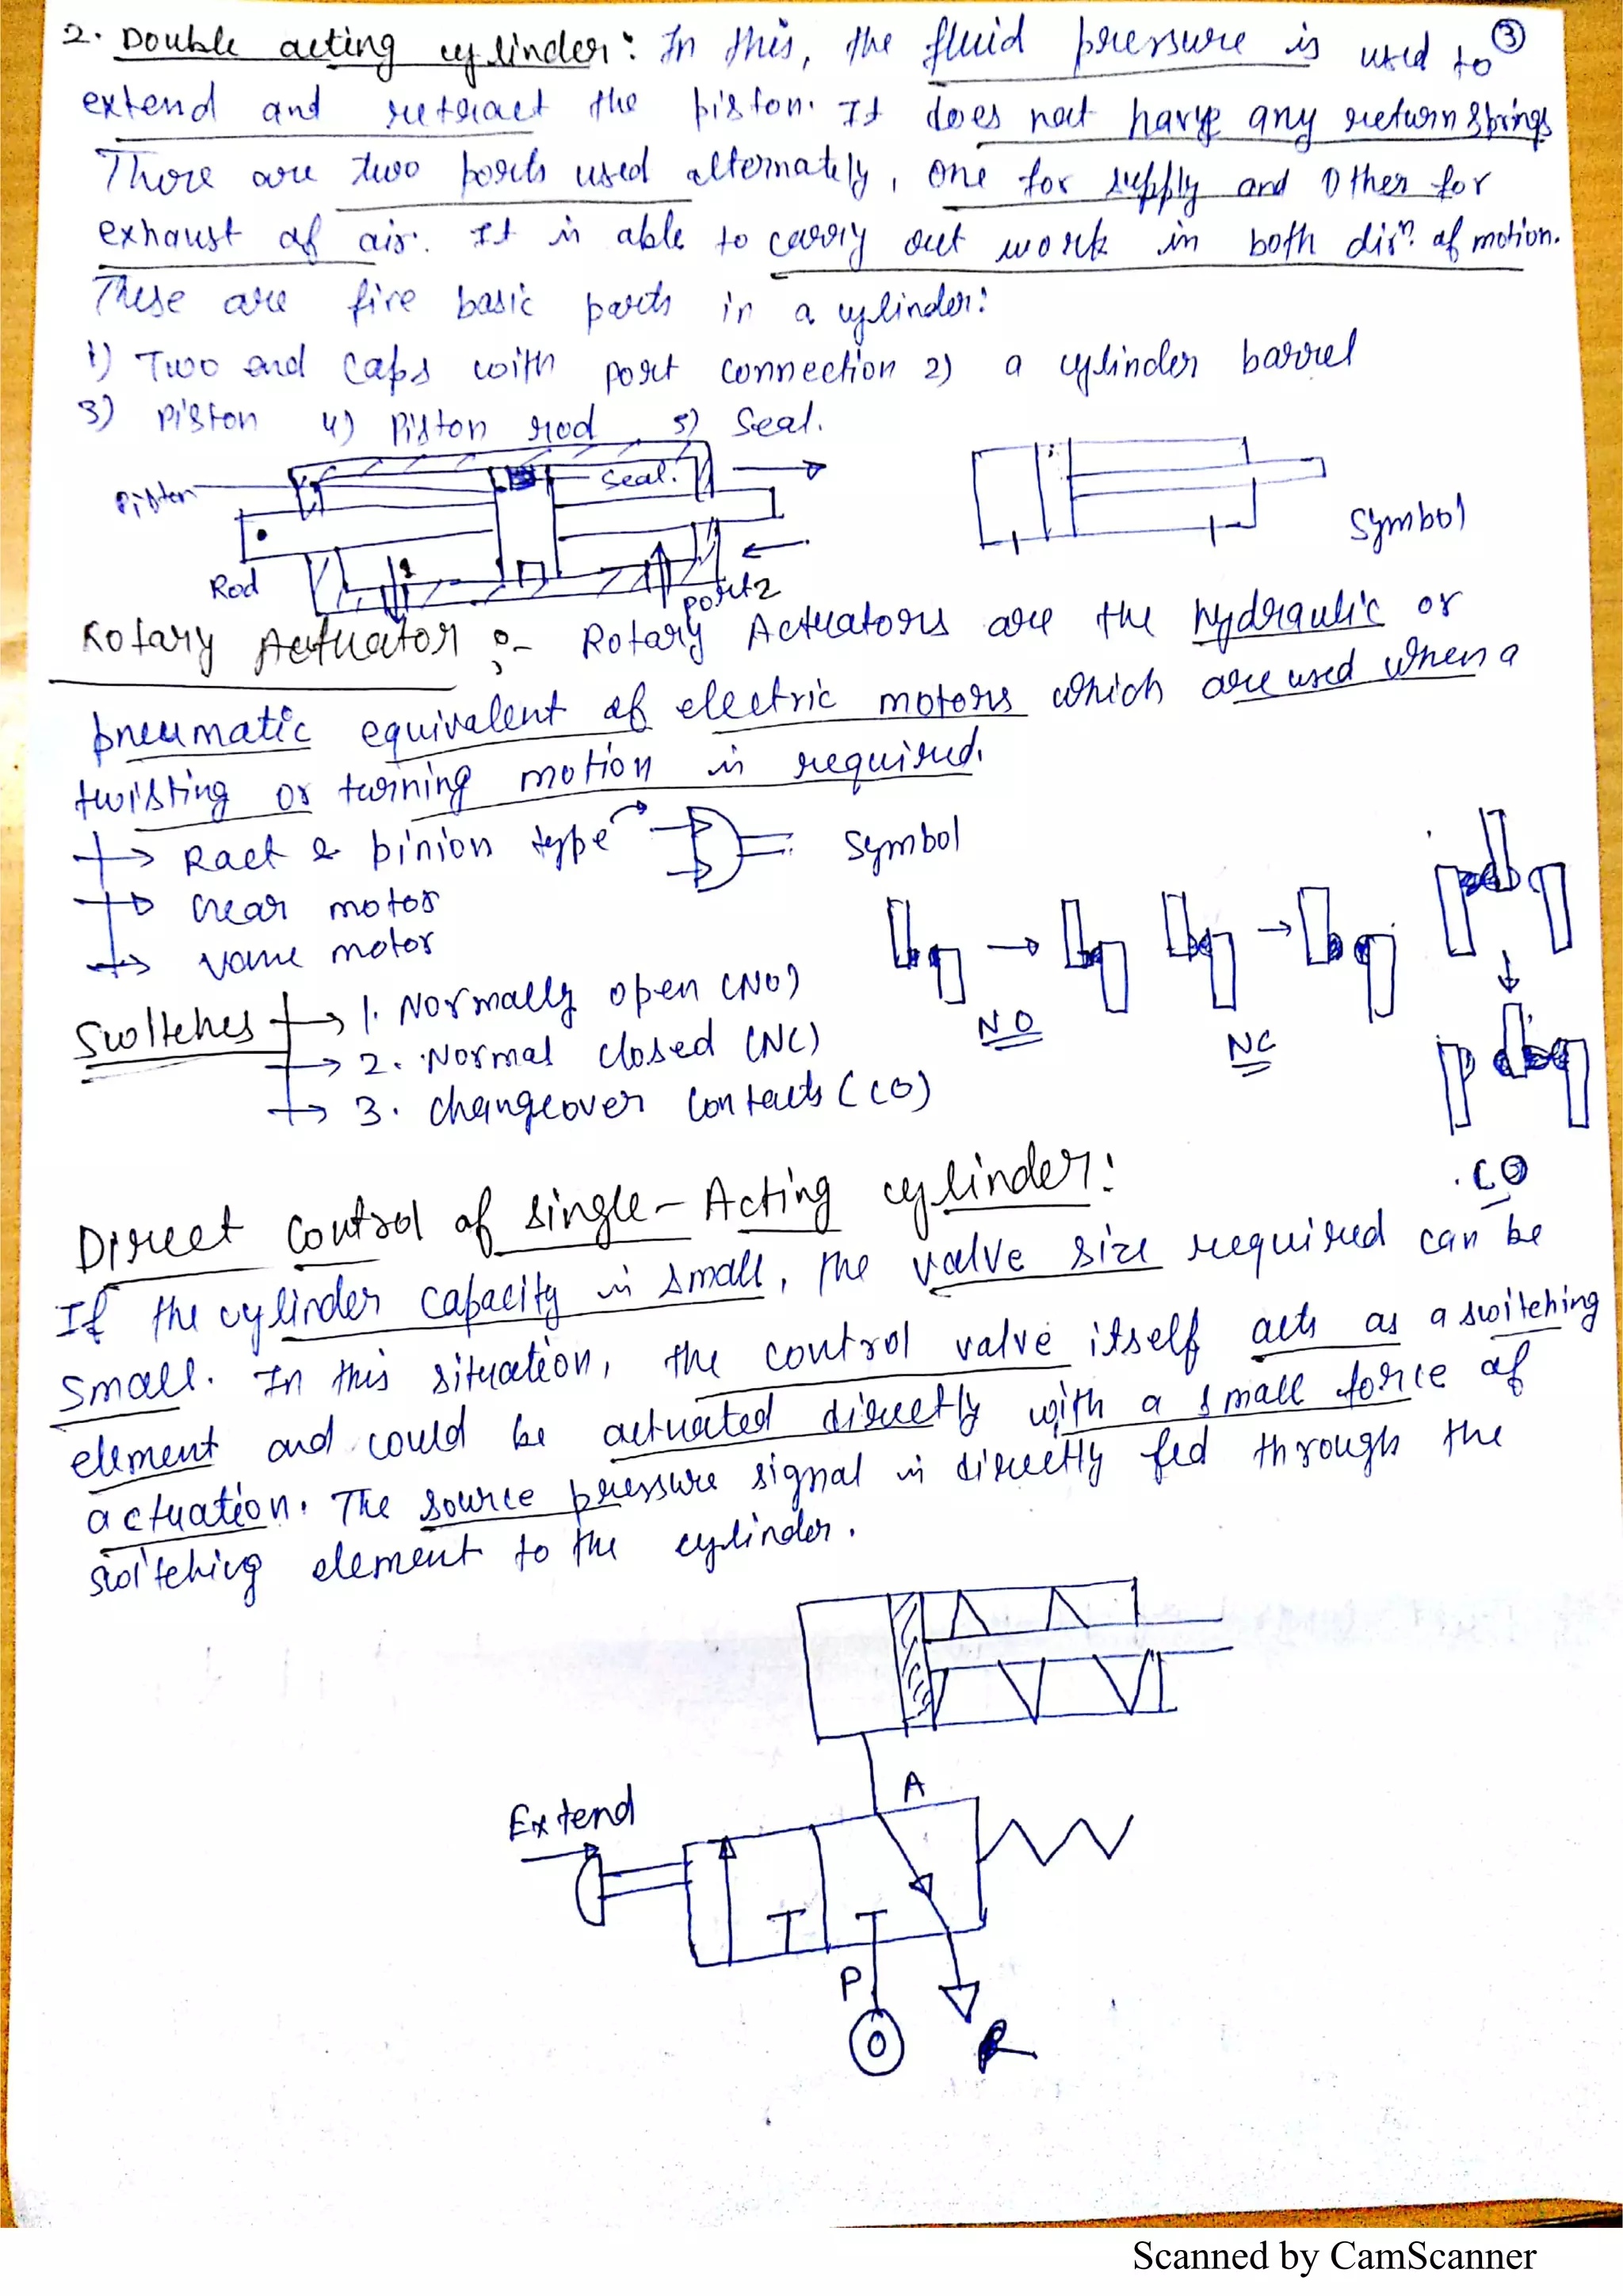 ③
2. Double acting cylinder: In this, the fluid pressure is used to
extend and retract the piston. It does not have any return springs
There are two ports used alternately, one for supply and Other for
exhaust of air. It is able to carry out work in both dirⁿ of motion.
These are five basic parts in a cylinder:
1) Two end caps with port connection 2) a cylinder barrel
3) Piston 4) Piston rod 5) Seal.
Piston
Seal.
Symbol
Rod
1
port 2
Rotary Actuator :- Rotary Actuators are the hydraulic or
pneumatic equivalent of electric motors which are used when a
twisting or turning motion is required.
→ Rack & pinion type
Symbol
→ Gear motor
→ Vane motor
Switches → 1. Normally open (NO)
→ 2. Normal closed (NC)
→ 3. changeover Contacts (CO)
NO
NC
CO
Direct Control of single-Acting cylinder:
If the cylinder capacity is small, the valve size required can be
small. In this situation, the control valve itself acts as a switching
element and could be actuated directly with a small force of
actuation. The source pressure signal is directly fed through the
switching element to the cylinder.
A
Extend
P
R
Scanned by CamScanner